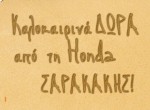 Καλοκαιρινά ΔΩΡΑ
από τη Honda
ΣΑΡΑΚΑΚΗΣ!